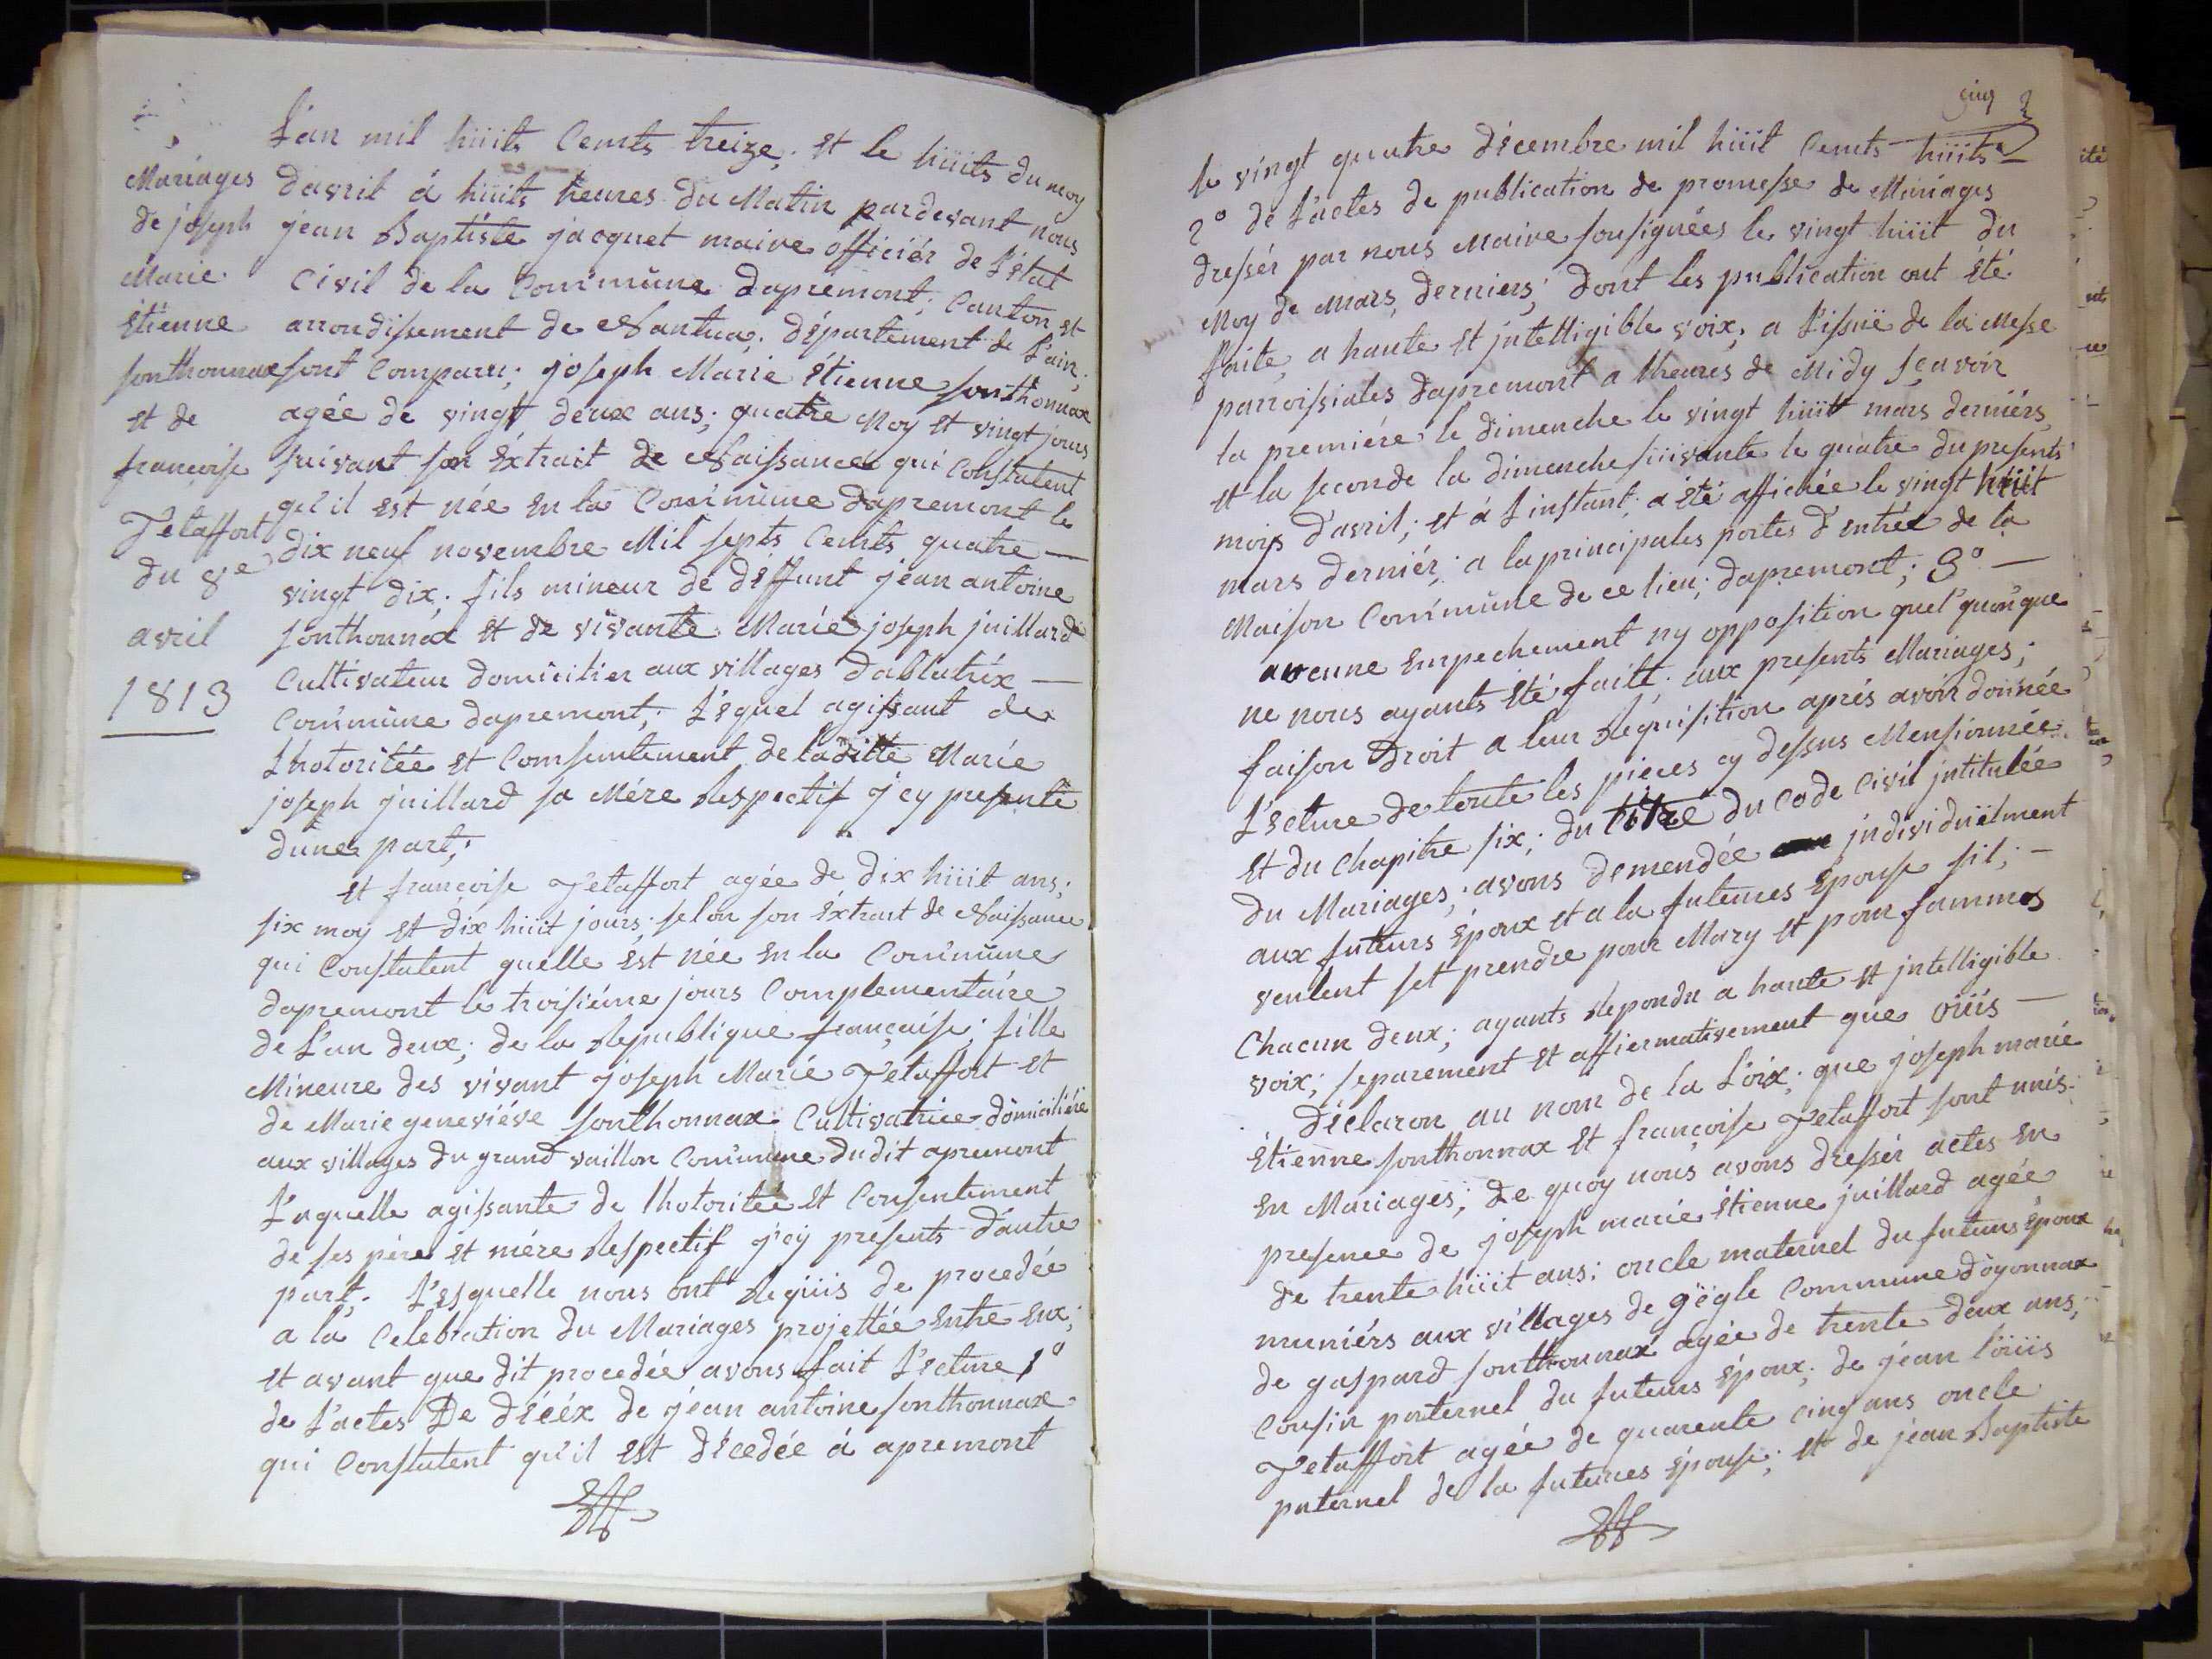 Mariages
de joseph
Marie
Etienne
sonthonnax
et de
francoise
Tetaffort
du 8e
avril
1813
L'an mil hüits Cents treize; Et le hüits du moy
Davril á hüits heures du Matin pardevant nous
jean Baptiste jacquet maire officiér de L'état
Civil de la Commune Dapremont; Canton et
arrondissement de Nantua; Département de L'ain;
sont Comparu; joseph Marie Étienne sonthonnax
agée de vingt deux ans; quatre Moy Et vingt jours
suivant son Extrait de Naissance qui Constatent
qu'il est née En la Commune Dapremont le
Dix neuf novembre Mil septs Cents quatre —
vingt Dix; fils mineur de Deffunt jean antoine
sonthonnax Et de vivante Marie joseph juillard
Cultivateur Domicilier aux villages Dablatrix —
Commune Dapremont; Lequel agissant de
Lhotoritée Et Comsentement de laditte Marie
joseph juillard sa Mére Respectif j'cy presente
Dune part;
Et françoise Tetaffort agée de Dix hüit ans;
six moy Et Dix hüit jours selon son Extrait de Naissance
qui Constatent quelle Est née En la Commune
Dapremont le troisiéme jours Complementaire
de L'an Deux; de la Republique française; fille
Mineure des vivant joseph Marie Tetaffort Et
de Marie geneviéve sonthonnax Cultivatrice Domiciliére
aux villages du grand vaillon Commune Dudit apremont
Laquelle agissante de lhotoritée Et Consentement
de ses pére Et mére Respectif j'cy presents D'autre
part; Lesquelle nous ont Requis de procedée
a la Celebration du Mariages projettée Entre Eux;
Et avant que Dit procedée avons fait L'ecture 1°
de L'actes De Décéx de jean antoine sonthonnax
qui Constatent qu'il Est Dècedée á apremont
cinq
le vingt quatre Décembre mil hüit Cents hüits
2° de L'actes de publication de promesse de Mariages
Dressér par nous Maire sousignées le vingt hüit du
Moy de Mars Derniers; Dont les publication ont été
faite a haute Et jntelligible voix; a L'issuë de la Messe
parroissiales Dapremont a lheures de Midy sçavoir
la premiére le Dimenche le vingt hüit mars Derniérs
Et la seconde la Dimenche süivante le quatre du presents
mois D'avril; Et á L'instant; a été affichée le vingt hüit
mars Derniér; a la principales portes D'entrée de la
Maison Commune de ce lieu; Dapremont; 3° —
aucune Empechement ny opposition quel'quon'que
ne nous ayants Eté faite; aux presents Mariages;
faison Droit a leur Requisition aprés avoir donnée
L'ecture de toute les pieces cy Dessus Mensionnée
Et du Chapitre six; du titre du Code Civil jntitulée
Du Mariages; avons Demendée jndividuëlment
aux futeurs Époux Et a la futeures Epouse sil; —
veulent set prendre pour Mary Et pour fammes
Chacun Deux; ayants Repondu a haute Et jntelligible
voix; separement Et affiermativement que oüis —
Déclaron au nom de la Loix; que joseph marie
Étienne sonthonnax Et françoise Tetaffort sont unis
En Mariages; De quoy nous avons Dressér actes En
presence de joseph marie Étienne juillard agée
de trente hüit ans; oncle maternel du futeurs Époux
muniérs aux villages de gëgle Commune Dòyonnax
de gaspard sonthonnax agée de trente Deux ans;
Cousin paternel du futeurs Époux; de jean Loüis
Tetaffort agée de quarente cinq ans oncle
paternel de la futeures épouse; Et de jean Baptiste